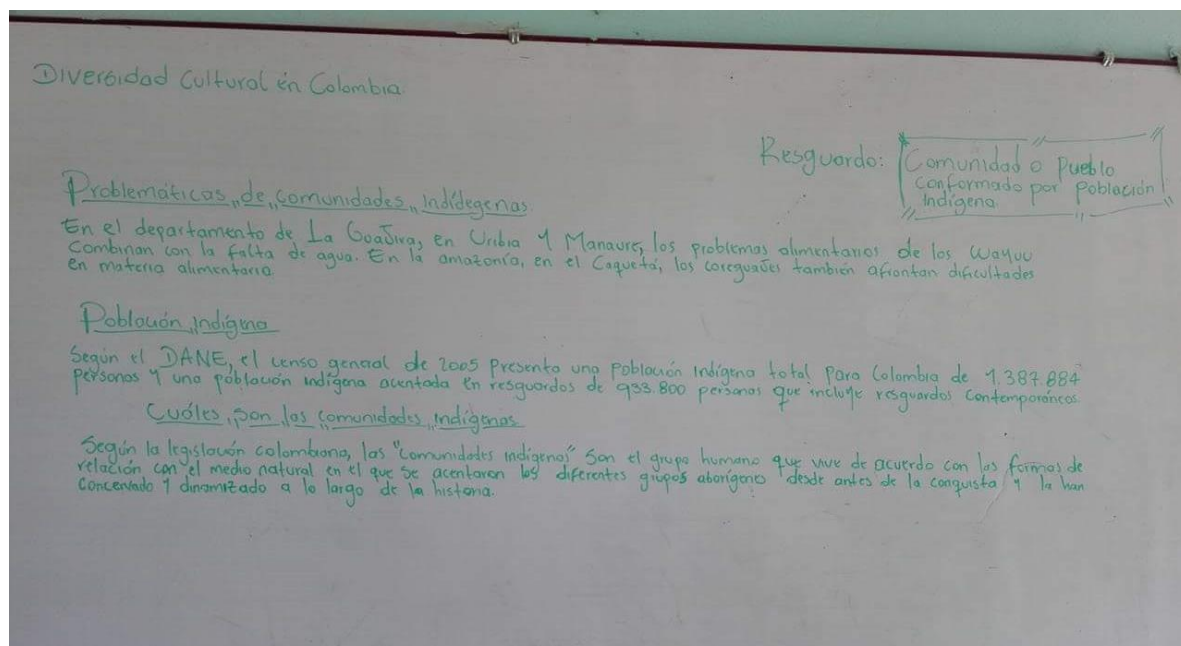 Diversidad Cultural en Colombia.
Resguardo: Comunidad o Pueblo
conformado por población
Indígena.
Problemáticas de comunidades Indídegenas
En el departamento de La Guajira, en Uribia y Manaure, los problemas alimentarios de los Wayuu
Combinan con la falta de agua. En la amazonía, en el Caquetá, los coreguajes también afrontan dificultades
en materia alimentaria.
Población Indígena
Según el DANE, el censo general de 2005 Presento una Población Indígena total Para Colombia de 1.387.884
personas y una población indígena acentada en resguardos de 933.800 personas que incluye resguardos Contemporáneos.
Cuáles son las comunidades indígenas
Según la legislación colombiana, las "comunidades indígenas" Son el grupo humano que vive de acuerdo con las formas de
relación con el medio natural en el que se acentaron los diferentes grupos aborígenes desde antes de la conquista y la han
concervado y dinamizado a lo largo de la historia.